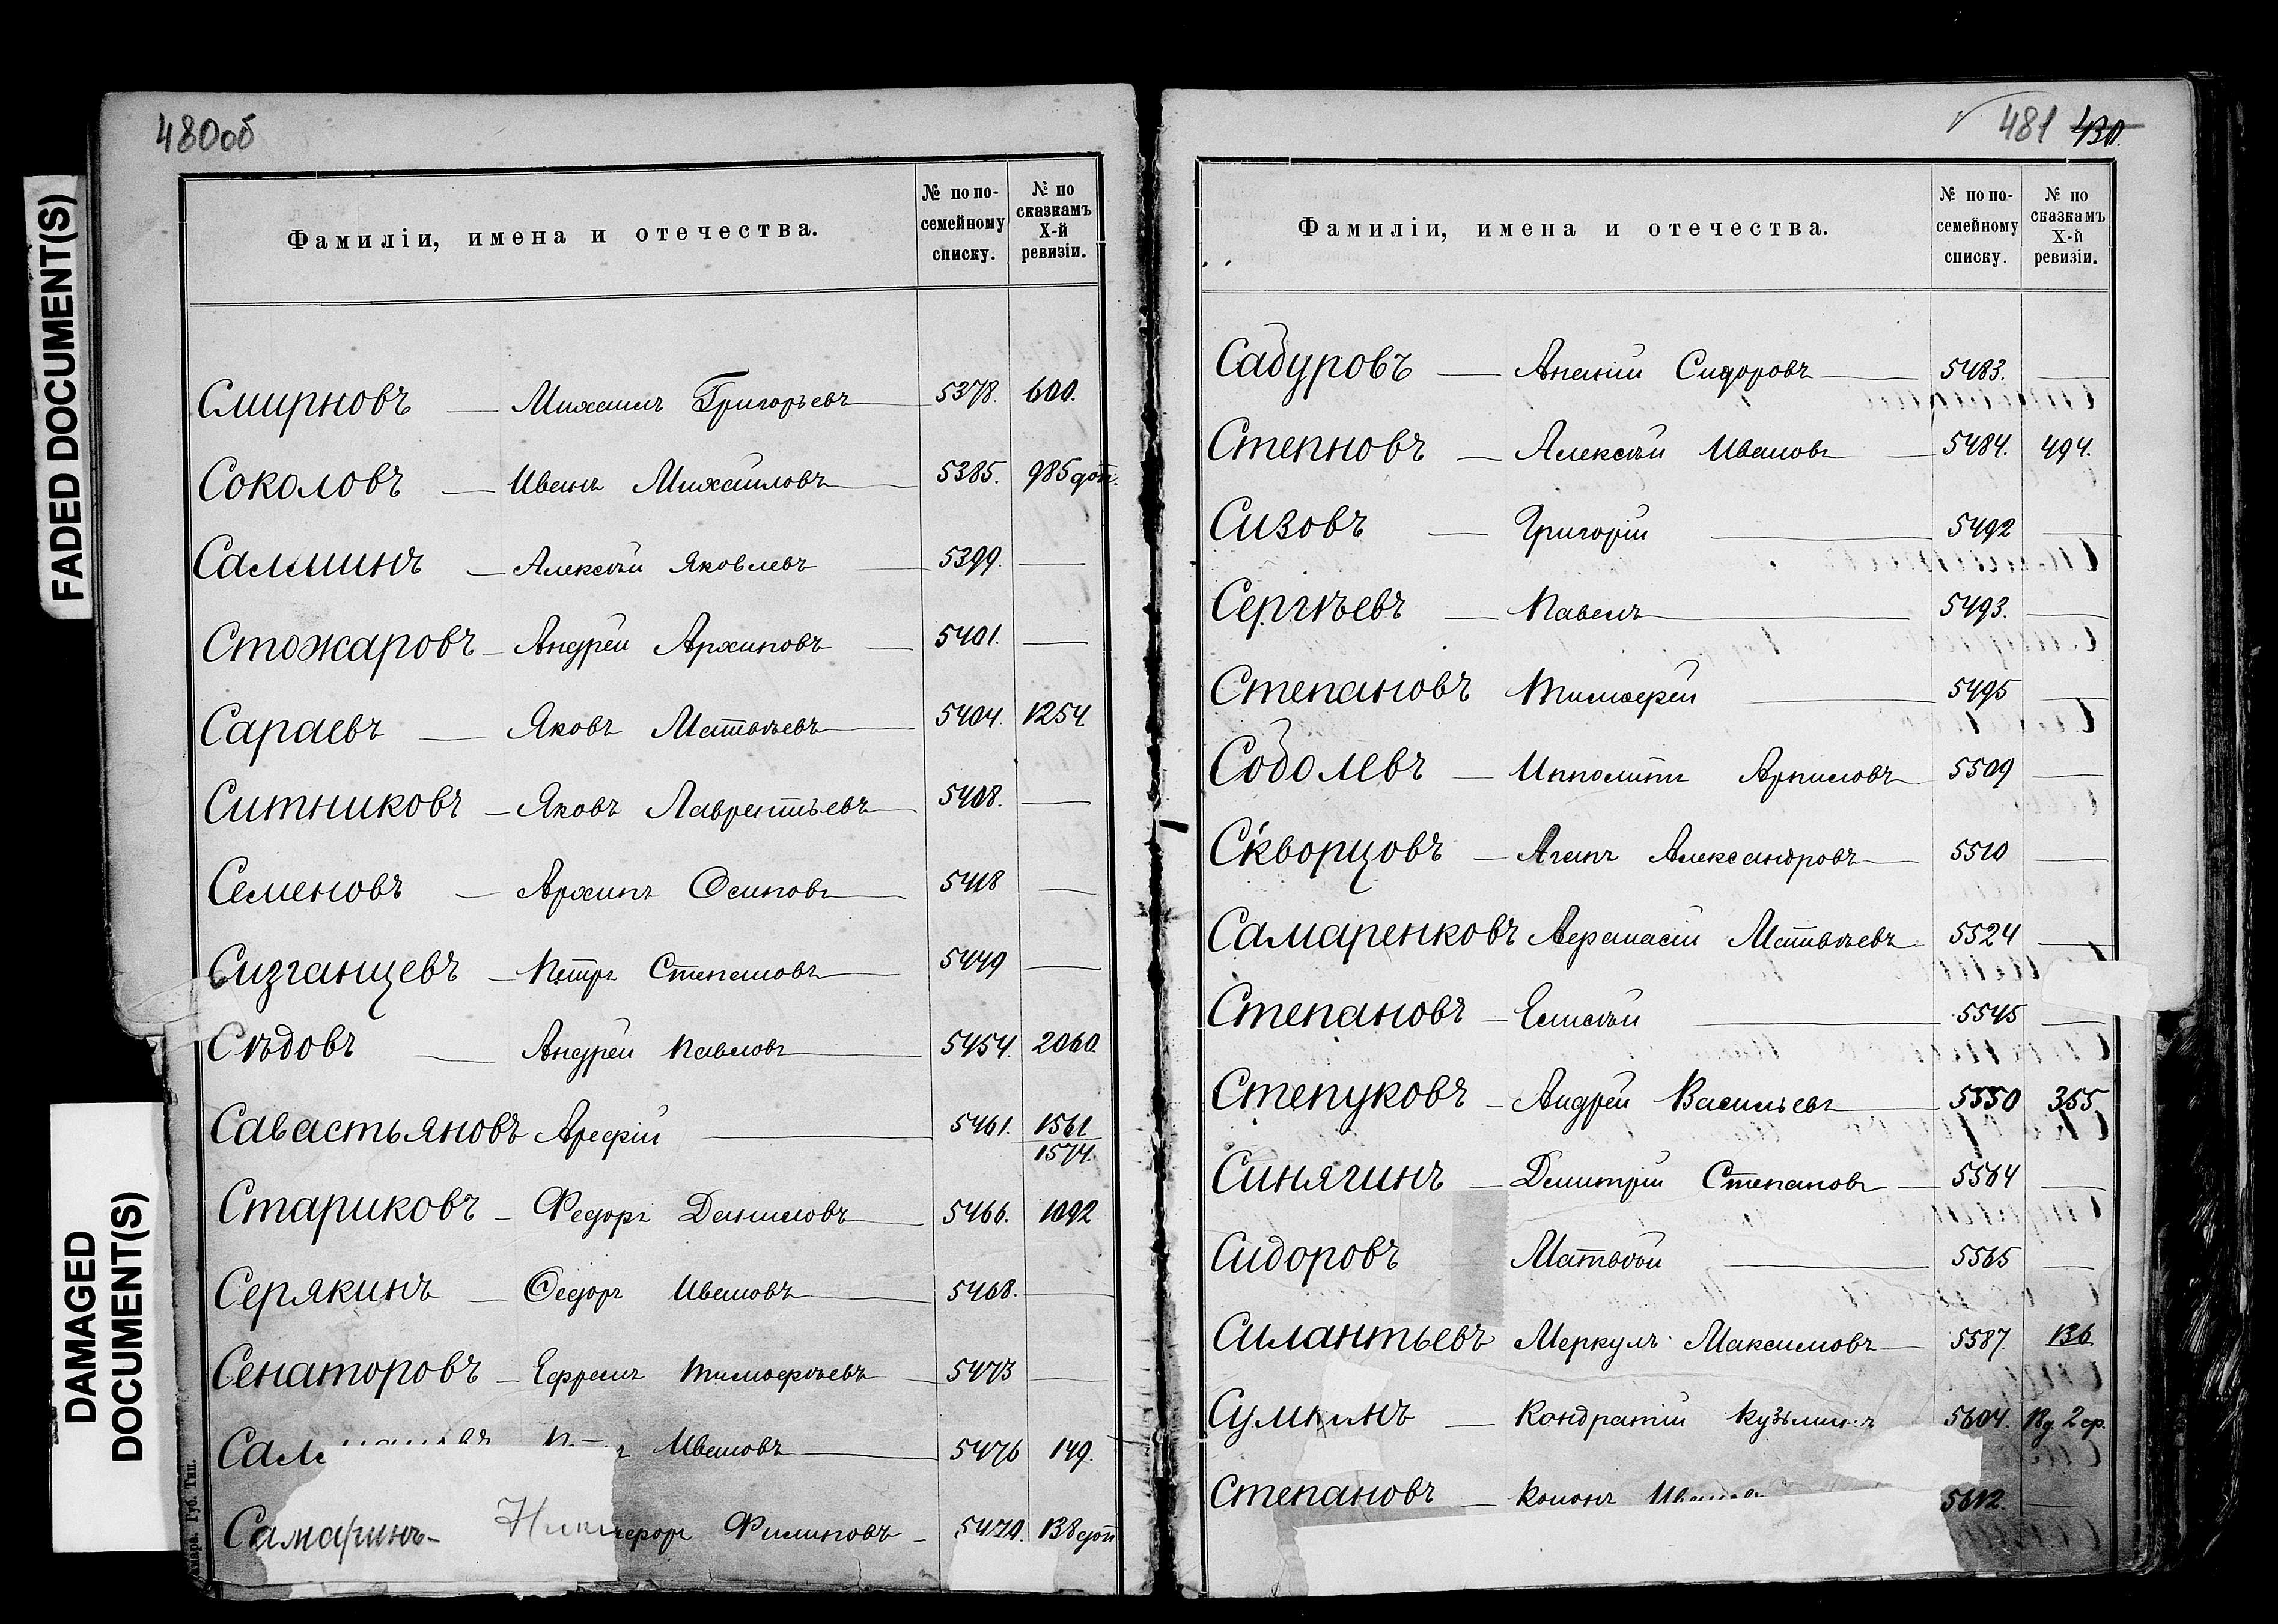 FADED DOCUMENT(S)
DAMAGED
DOCUMENT(S)
480об
Фамиліи, имена и отечества. № по по-семейному списку. № по сказкамъ X-й ревизіи.
Смирновъ — Михаилъ Григорьевъ 5378. 600.
Соколовъ — Иванъ Михайловъ 5385. 985 доп.
Салминъ — Алексѣй Яковлевъ — 5399. —
Стожаровъ — Андрей Архиповъ — 5401. —
Сараевъ — Яковъ Матвѣевъ 5404. 1254
Ситниковъ — Яковъ Лаврентьевъ 5408. —
Семеновъ — Архипъ Осиповъ 5418 —
Сизганцевъ — Петръ Степановъ 5449 —
Сѣдовъ — Андрей Павловъ 5454. 2060
Савастьяновъ Арефій — 5461. 1561
1574.
Стариковъ — Федоръ Даниловъ 5466. 1092
Серякинъ — Федоръ Ивановъ 5468. —
Сенаторовъ — Ефремъ Тимофѣевъ — 5473 —
Ивановъ — 5476 149.
Самаринъ — Никифоръ Филиповъ — 138 доп
Губ. Тип.
481 430.
Фамиліи, имена и отечества. № по по-семейному списку. № по сказкамъ X-й ревизіи.
Сабуровъ — Ананій Сидоровъ — 5483. —
Степновъ — Алексѣй Ивановъ — 5484. 494.
Сизовъ — Григорій — 5492 —
Сергѣевъ — Павелъ — 5493. —
Степановъ Тимофей — 5495 —
Соболевъ — Ипполитъ 5509 —
Скворцовъ — Агапъ Александровъ — 5510 —
Самаренковъ Афанасій Матвѣевъ 5524 —
Степановъ — Елисѣй — 5545 —
Степуковъ — Андрей Васильевъ 5550 355
Синягинъ — Дмитрій Степановъ — 5564 —
Сидоровъ Матвѣй — 5565 —
Силантьевъ Меркулъ Максимовъ — 5587. 136
Сумкинъ — Кондратій Кузьминъ 5604.
Степановъ — Кононъ Ивановъ 5612. —